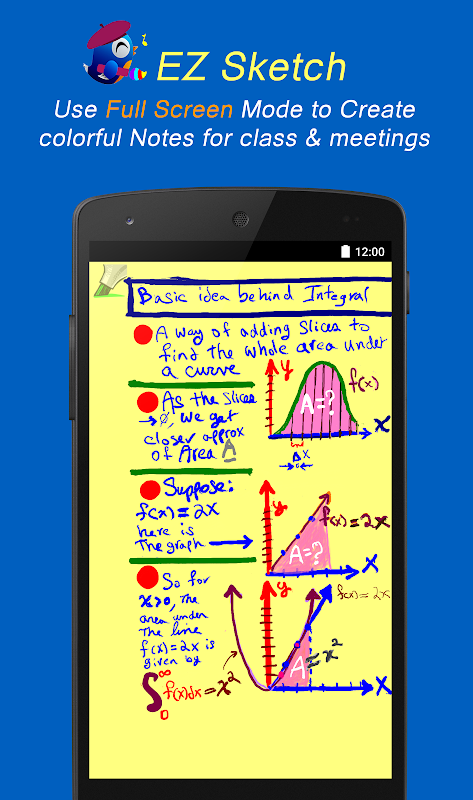 EZ Sketch
Use Full Screen Mode to Create
colorful Notes for class & meetings
12:00
Basic idea behind Integral
A way of adding Slices to
find the whole area under
a curve
y
f(x)
A=?
x
Δx
As the Slices
→0, we get
closer approx
of Area A
Suppose:
f(x) = 2x
here is
The graph
y
f(x) = 2x
A=?
X
So for
x>0, The
area under
The line
f(x) = 2x is
given by
∫ ∞ 0 f(x)dx = x²
y
f(x) = 2x
A = x²
X